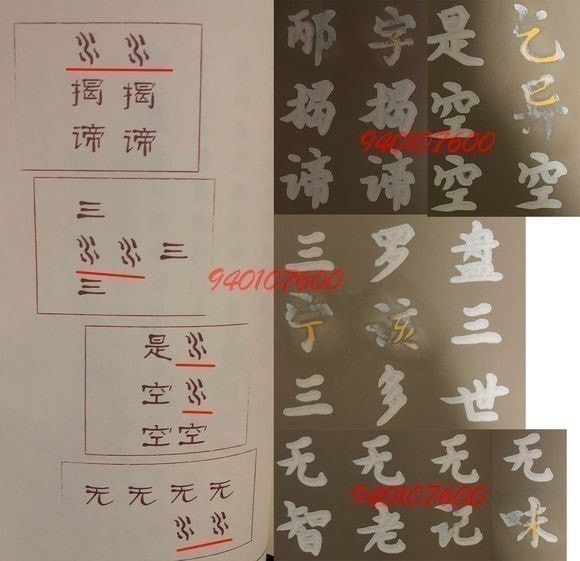 揭 揭
谛 谛
三
三
三
是
空
空 空
无 无 无 无
字
揭 揭
谛 谛
是 乙
空 异
空 空
940107600
940107600
三 罗 盘
宁 该 三
三 多 世
无 无 无 无
智 老 记 味
940107600